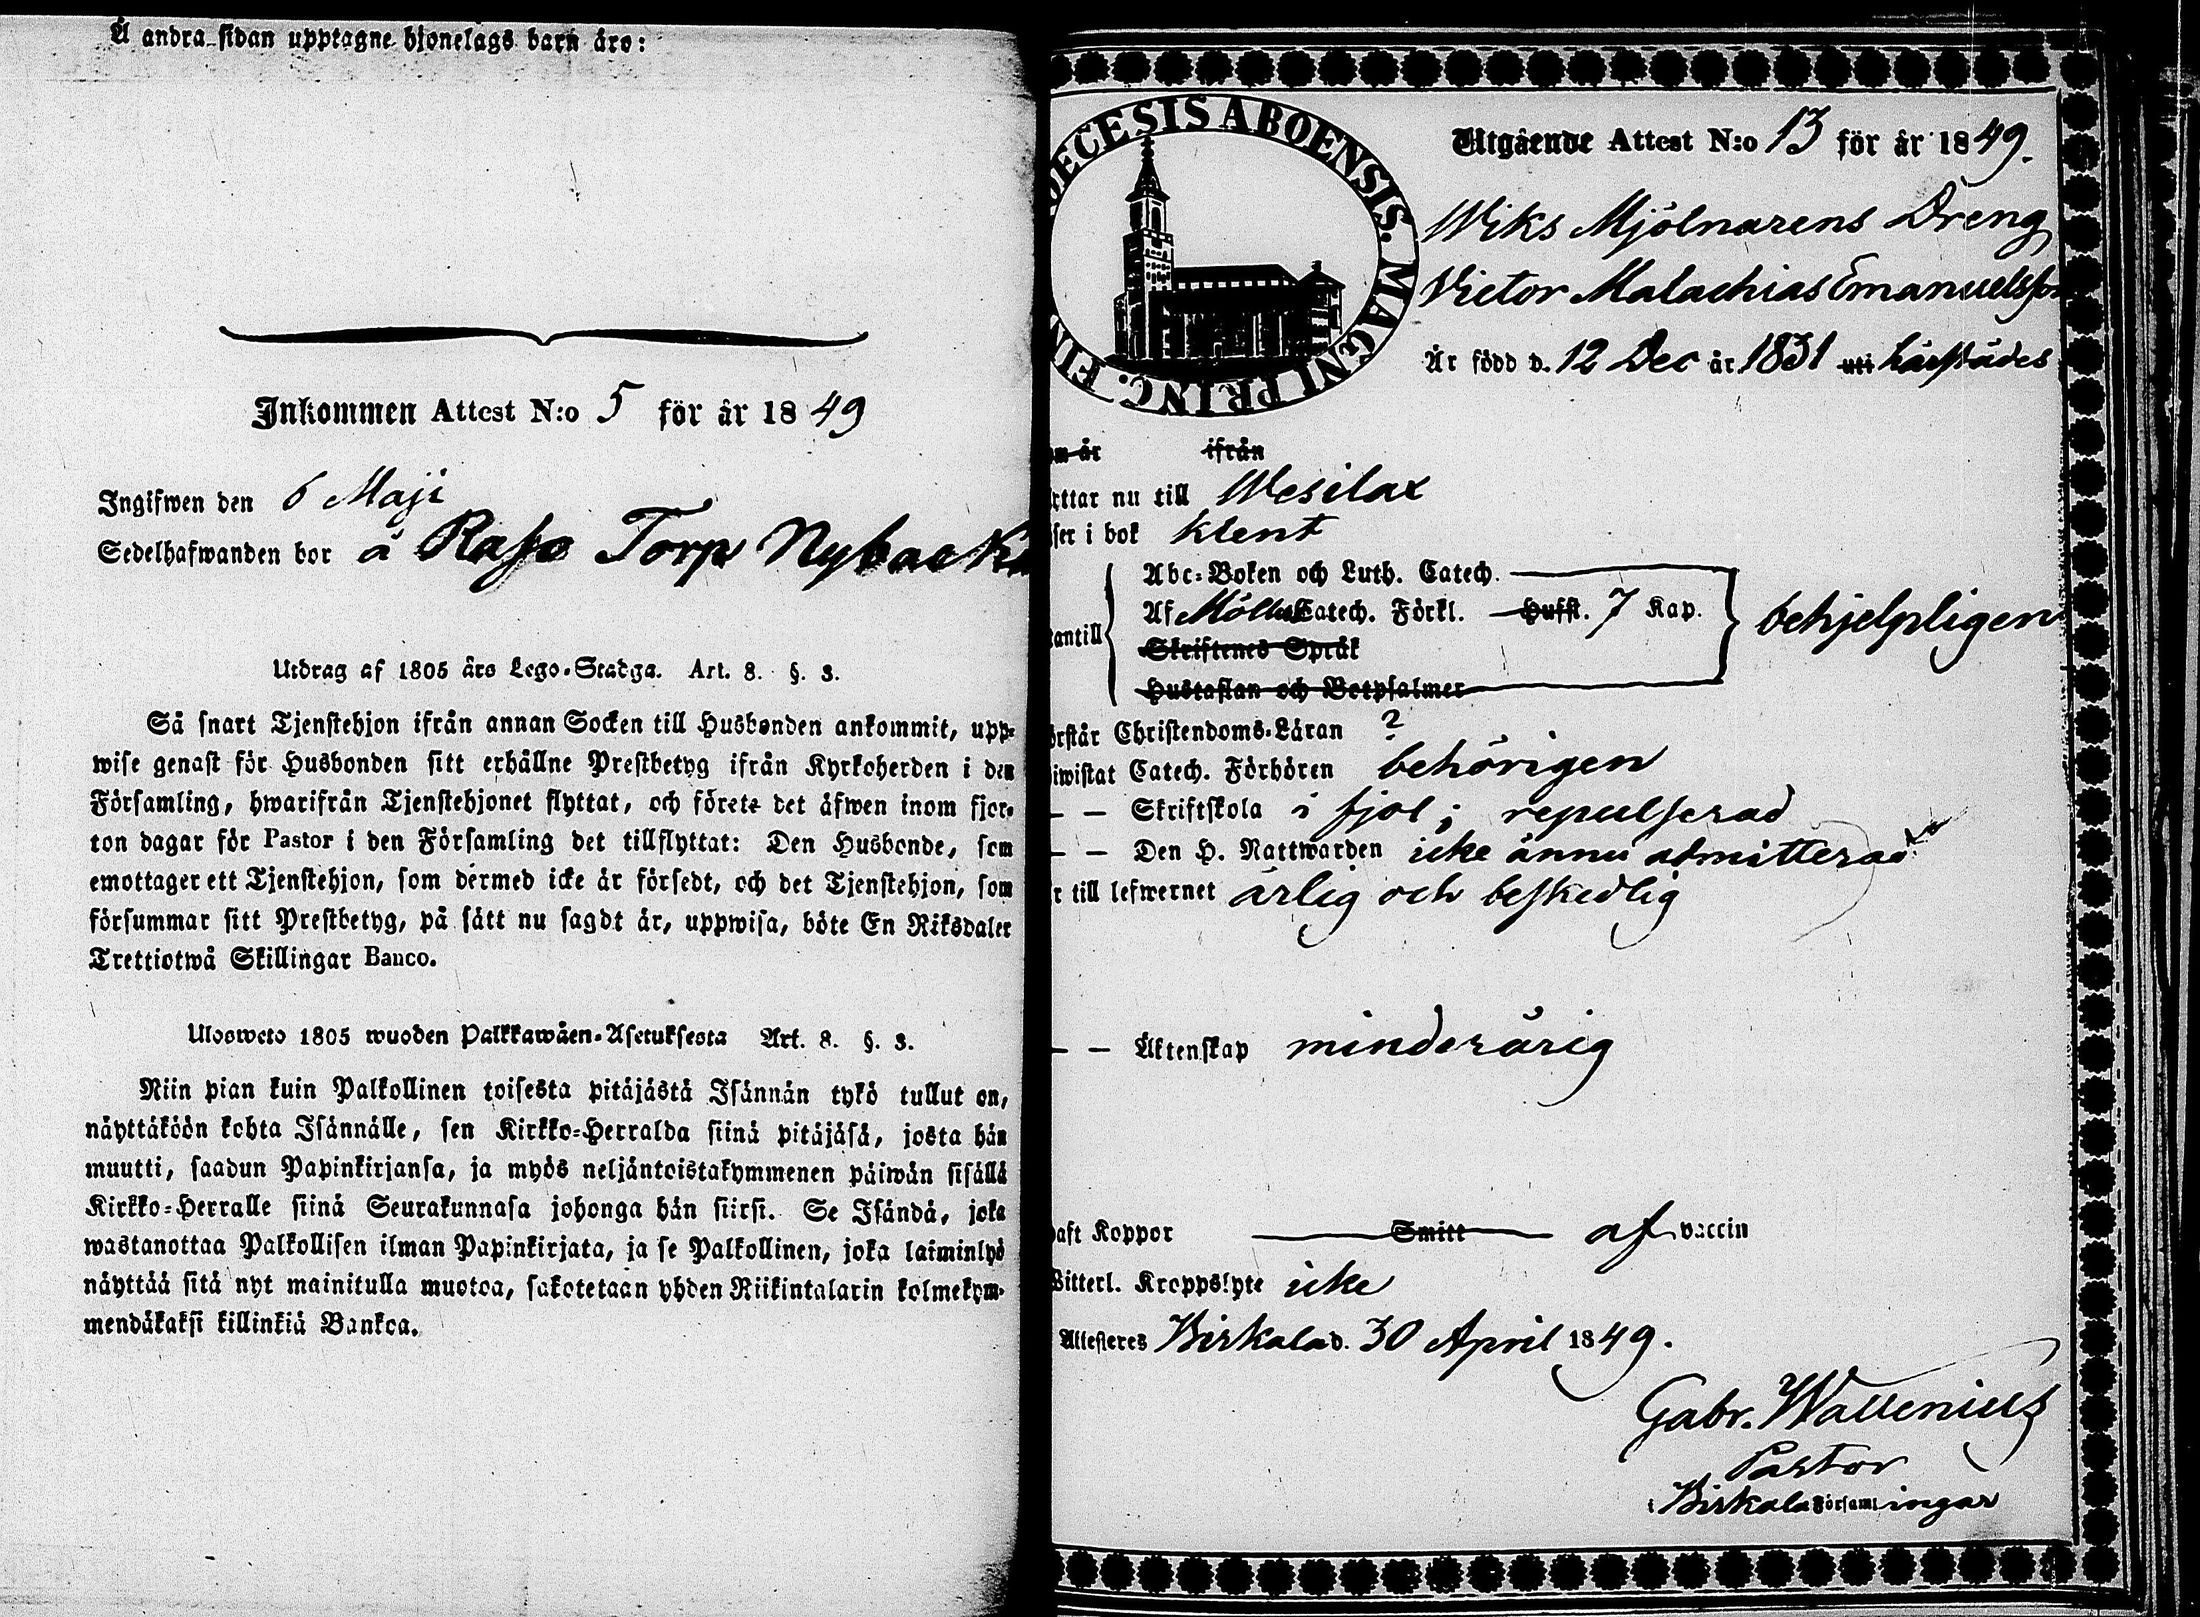 Å andra sidan upptagne hjonelags barn äro:
Inkommen Attest N:o 5 för år 1849
Ingifwen den 6 Maji
Sedelhafwanden bor å Torp Nybacka
Utdrag af 1805 års Lego-Stadga. Art. 8. §. 3.
Så snart Tjenstehjon ifrån annan Socken till Husbonden ankommit, upp-
wise genast för Husbonden sitt erhållne Prestbetyg ifrån Kyrkoherden i den
Församling, hwarifrån Tjenstehjonet flyttat, och förete det äfwen inom fjor-
ton dagar för Pastor i den Församling det tillflyttat: Den Husbonde, som
emottager ett Tjenstehjon, som dermed icke är försedt, och det Tjenstehjon, som
försummar sitt Prestbetyg, på sätt nu sagdt är, uppwisa, böte En Riksdaler
Trettiotwå Skillingar Banco.
Ulosweto 1805 wuoden Palkkawäen-Asetuksesta Art. 8. §. 3.
Niin pian kuin Palkollinen toisesta pitäjästä Isännän tykö tullut on,
näyttäköön kohta Isännälle, sen Kirkko-Herralda siinä pitäjäsä, josta hän
muutti, saadun Papinkirjansa, ja myös neljäntoistakymmenen päiwän sisällä
Kirkko-Herralle siinä Seurakunnasa johonga hän siirsi. Se Isändä, joka
wastanottaa Palkollisen ilman Papinkirjata, ja se Palkollinen, joka laiminlyö
näyttää sitä nyt mainitulla muotoa, sakotetaan yhden Riikintalarin kolmekym-
mendäkaksi killinkiä Bankoa.
ECESIS ABOENSIS. MAGNI PRINC. FIN
Utgående Attest N:o 13 för år 1849.
Wiks Mjölnarens Dreng
Victor Malachias Emanuelsson
Är född d. 12 Dec år 1831 uti härstädes
om år ifrån
ttar nu till Wesilax
ser i bok klent
Abc-Boken och Luth. Catech.
Af Möllers Catech. Förkl. Hufst. 7 Kap.
antill behjelpligen
Skriftenes Språk
Hustaflan och Botpsalmer
örstår Christendoms-Läran ?
iwistat Catech. Förhören behörigen
— — Skriftskola i fjol; repulserad
— — Den H. Nattwarden icke ännu admitterad
r till lefwernet ärlig och beskedlig
— — Äktenskap minderårig
aft Koppor Smitt af vaccin
Witterl. Kroppslyte icke
Attesteres Birkala d. 30 April 1849.
Gabr. Wallenius
Pastor
i Birkala Församlingar